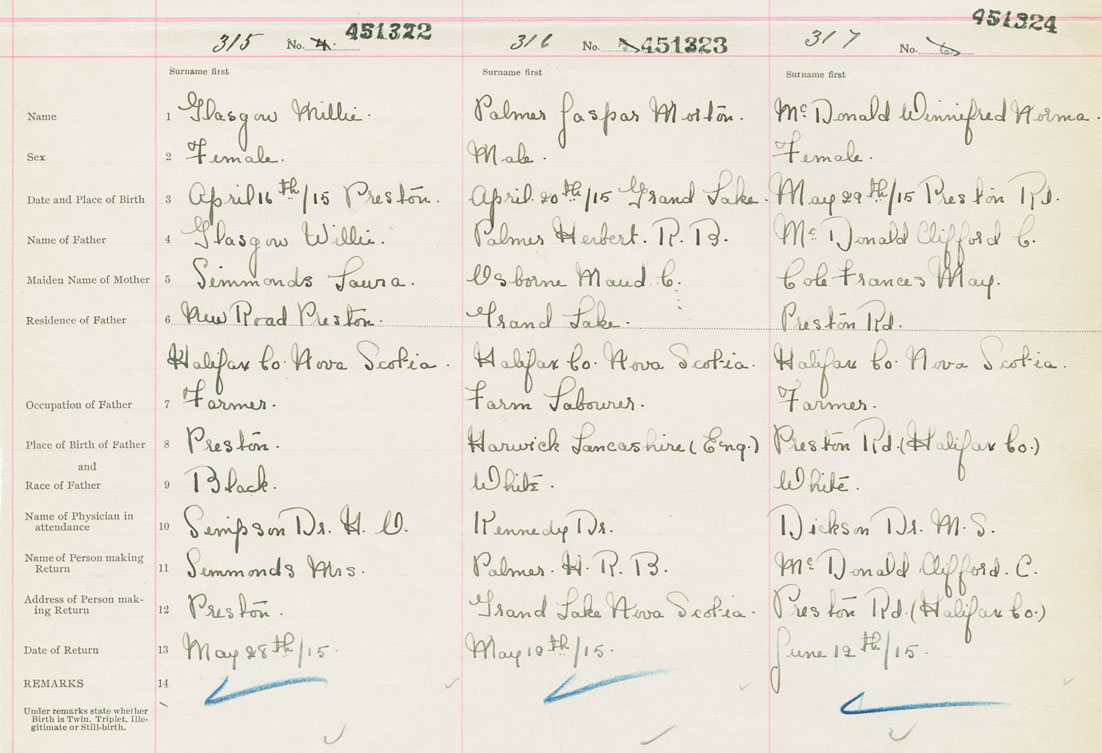 315 No. 4. 451322 316 No. 5 451323 317 No. 6 451324
Surname first Surname first Surname first
Name 1 Glasgow Willie. Palmer Gaspar Morton. McDonald Winnifred Norma.
Sex 2 Female. Male. Female.
Date and Place of Birth 3 April 16th/15 Preston. April 20th/15 Grand Lake. May 29th/15 Preston Rd.
Name of Father 4 Glasgow Willie. Palmer Herbert. R. B. McDonald Clifford C.
Maiden Name of Mother 5 Simmonds Laura. Osborne Maud C. Cole Frances May.
Residence of Father 6 New Road Preston. Grand Lake. Preston Rd.
Halifax Co. Nova Scotia. Halifax Co. Nova Scotia. Halifax Co. Nova Scotia.
Occupation of Father 7 Farmer. Farm Labourer. Farmer.
Place of Birth of Father 8 Preston. Harwick Lancashire (Eng.) Preston Rd. (Halifax Co.)
and
Race of Father 9 Black. White. White.
Name of Physician in attendance 10 Simpson Dr. H. O. Kennedy Dr. Dickson Dr. M. S.
Name of Person making Return 11 Simmonds Mrs. Palmer. H. R. B. McDonald Clifford. C.
Address of Person mak-ing Return 12 Preston. Grand Lake Nova Scotia. Preston Rd. (Halifax Co.)
Date of Return 13 May 28th/15. May 19th/15. June 12th/15.
REMARKS 14
Under remarks state whether
Birth is Twin, Triplet, Ille-
gitimate or Still-birth.